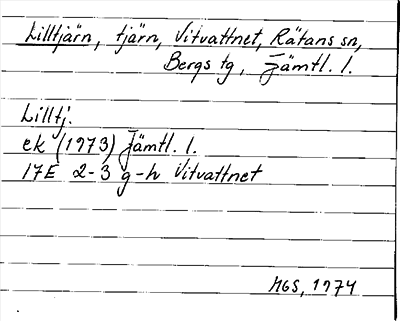 Lilltjärn, tjärn, Vitvattnet, Rätans sn,
Bergs tg, Jämtl. l.
Lilltj.
ek (1973) Jämtl. l.
17E 2-3 g-h Vitvattnet
MGS, 1974